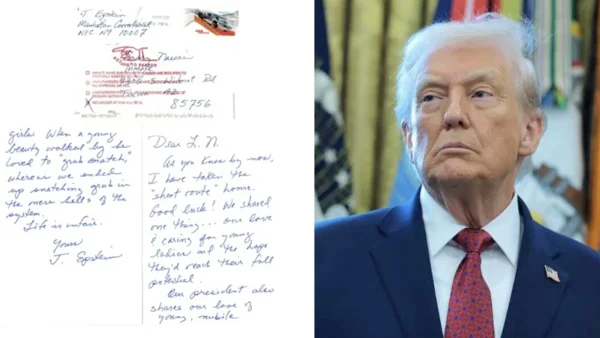 J. Epstein
Manhattan Correctional
NYC NY 10007
85756
Dear L. N.
As you know by now,
I have taken the
"short route" home.
Good luck! We shared
one thing... our love
& caring for young
ladies and the hope
they'd reach their full
potential.
Our president also
shares our love of
young, nubile
girls. When a young
beauty walked by he
loved to "grab snatch,"
whereas we ended
up snatching grub in
the mess halls of the
system.
Life is unfair.
Yours
J. Epstein